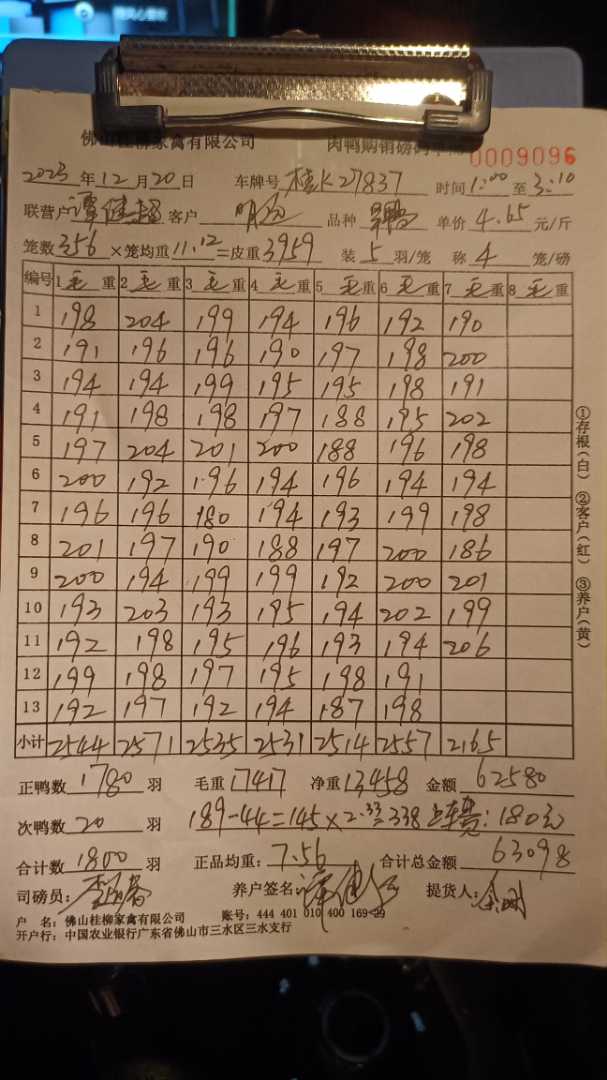 佛山桂柳家禽有限公司 肉鸭购销磅码单 0009096
2023年12月20日 车牌号 桂K27837 时间1:00至3:10
联营户 谭健超 客户 明 品种 单价4.65元/斤
笼数356×笼均重11.12=皮重3959 装5羽/笼 称4笼/磅
编号 1毛重 2毛重 3毛重 4毛重 5毛重 6毛重 7毛重 8毛重
1 198 204 199 194 196 192 190
2 191 196 196 190 197 198 200
3 194 194 199 195 195 198 191
4 191 198 198 197 188 195 202
5 197 204 201 200 188 196 198
6 200 192 196 194 196 194 194
7 196 196 180 194 193 199 198
8 201 197 190 188 197 200 186
9 200 194 199 199 192 200 201
10 193 203 193 195 194 202 199
11 192 198 195 196 193 194 206
12 199 198 197 195 198 191
13 192 197 192 194 187 198
小计 2544 2571 2535 2531 2514 2557 2165
正鸭数1780羽 毛重17417 净重13458 金额62580
次鸭数20羽 189-44=145×2.33 338 上车费:180元
合计数1800羽 正品均重:7.56 合计总金额63098
司磅员: 养户签名: 提货人:
户 名:佛山桂柳家禽有限公司 账号:444 401 010 400 169 29
开户行:中国农业银行广东省佛山市三水区三水支行
①存根(白) ②客户(红) ③养户(黄)